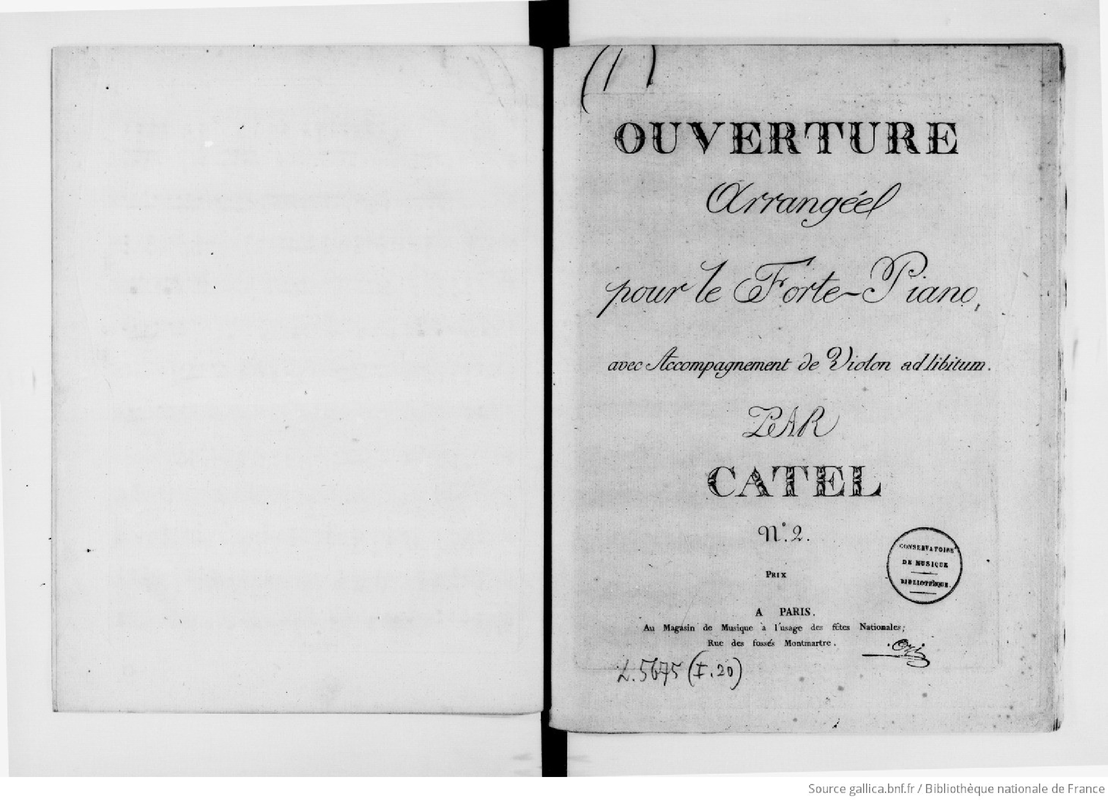 (1)
OUVERTURE
Arrangéel
pour le Forte-Piano,
avec Accompagnement de Violon ad libitum.
PAR
CATEL
N.º 2.
PRIX
A PARIS.
Au Magasin de Musique a l'usage des fêtes Nationales;
Rue des fossés Montmartre.
CONSERVATOIRE
DE MUSIQUE
BIBLIOTHÈQUE.
L.5675 (I.20)
Source gallica.bnf.fr / Bibliothèque nationale de France